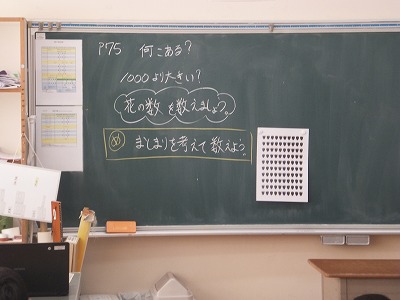 P75 何こある?
1000より大きい?
花の数を数えましょう。
め まとまりを考えて数えよう。